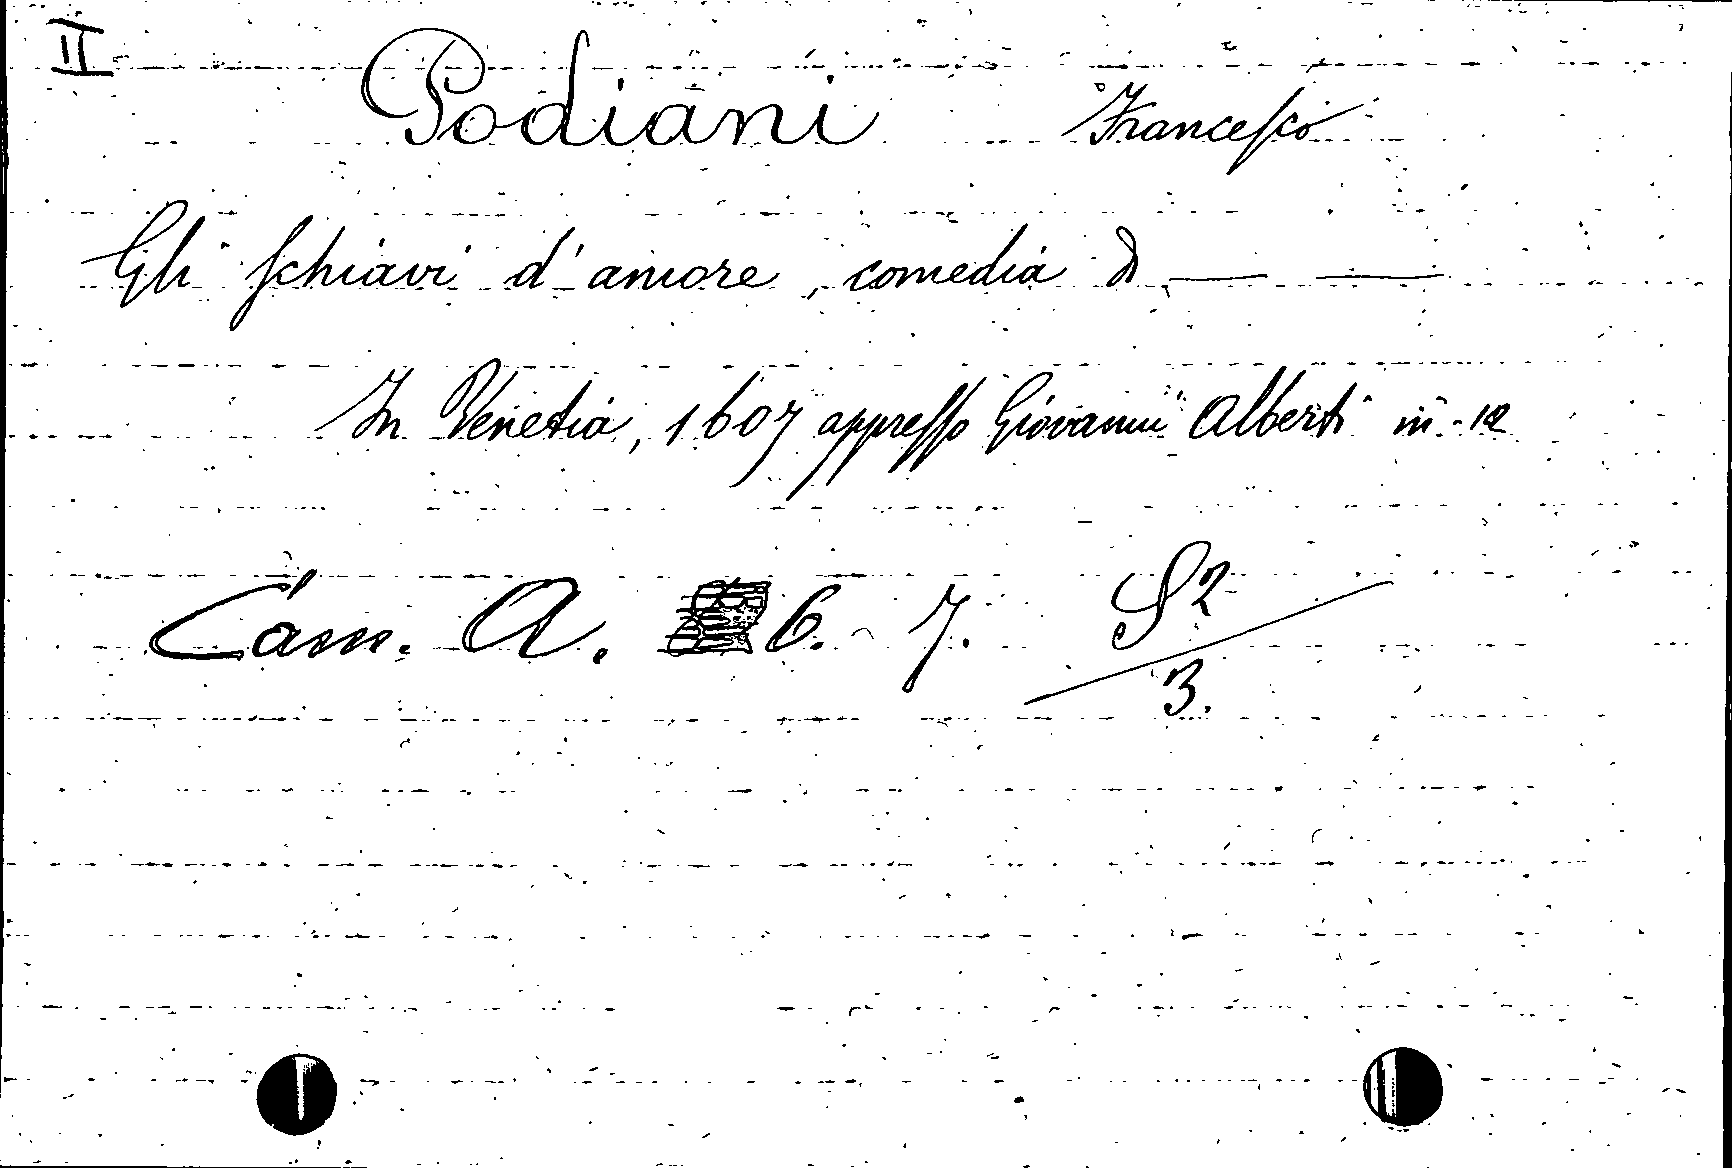 II
Podiani Francesco
Gli schiavi d'amore, comedia di — —
In Venetia, 1607 appresso Giovanni Alberti in-12
Cam. A. 6. 7. S2/3.